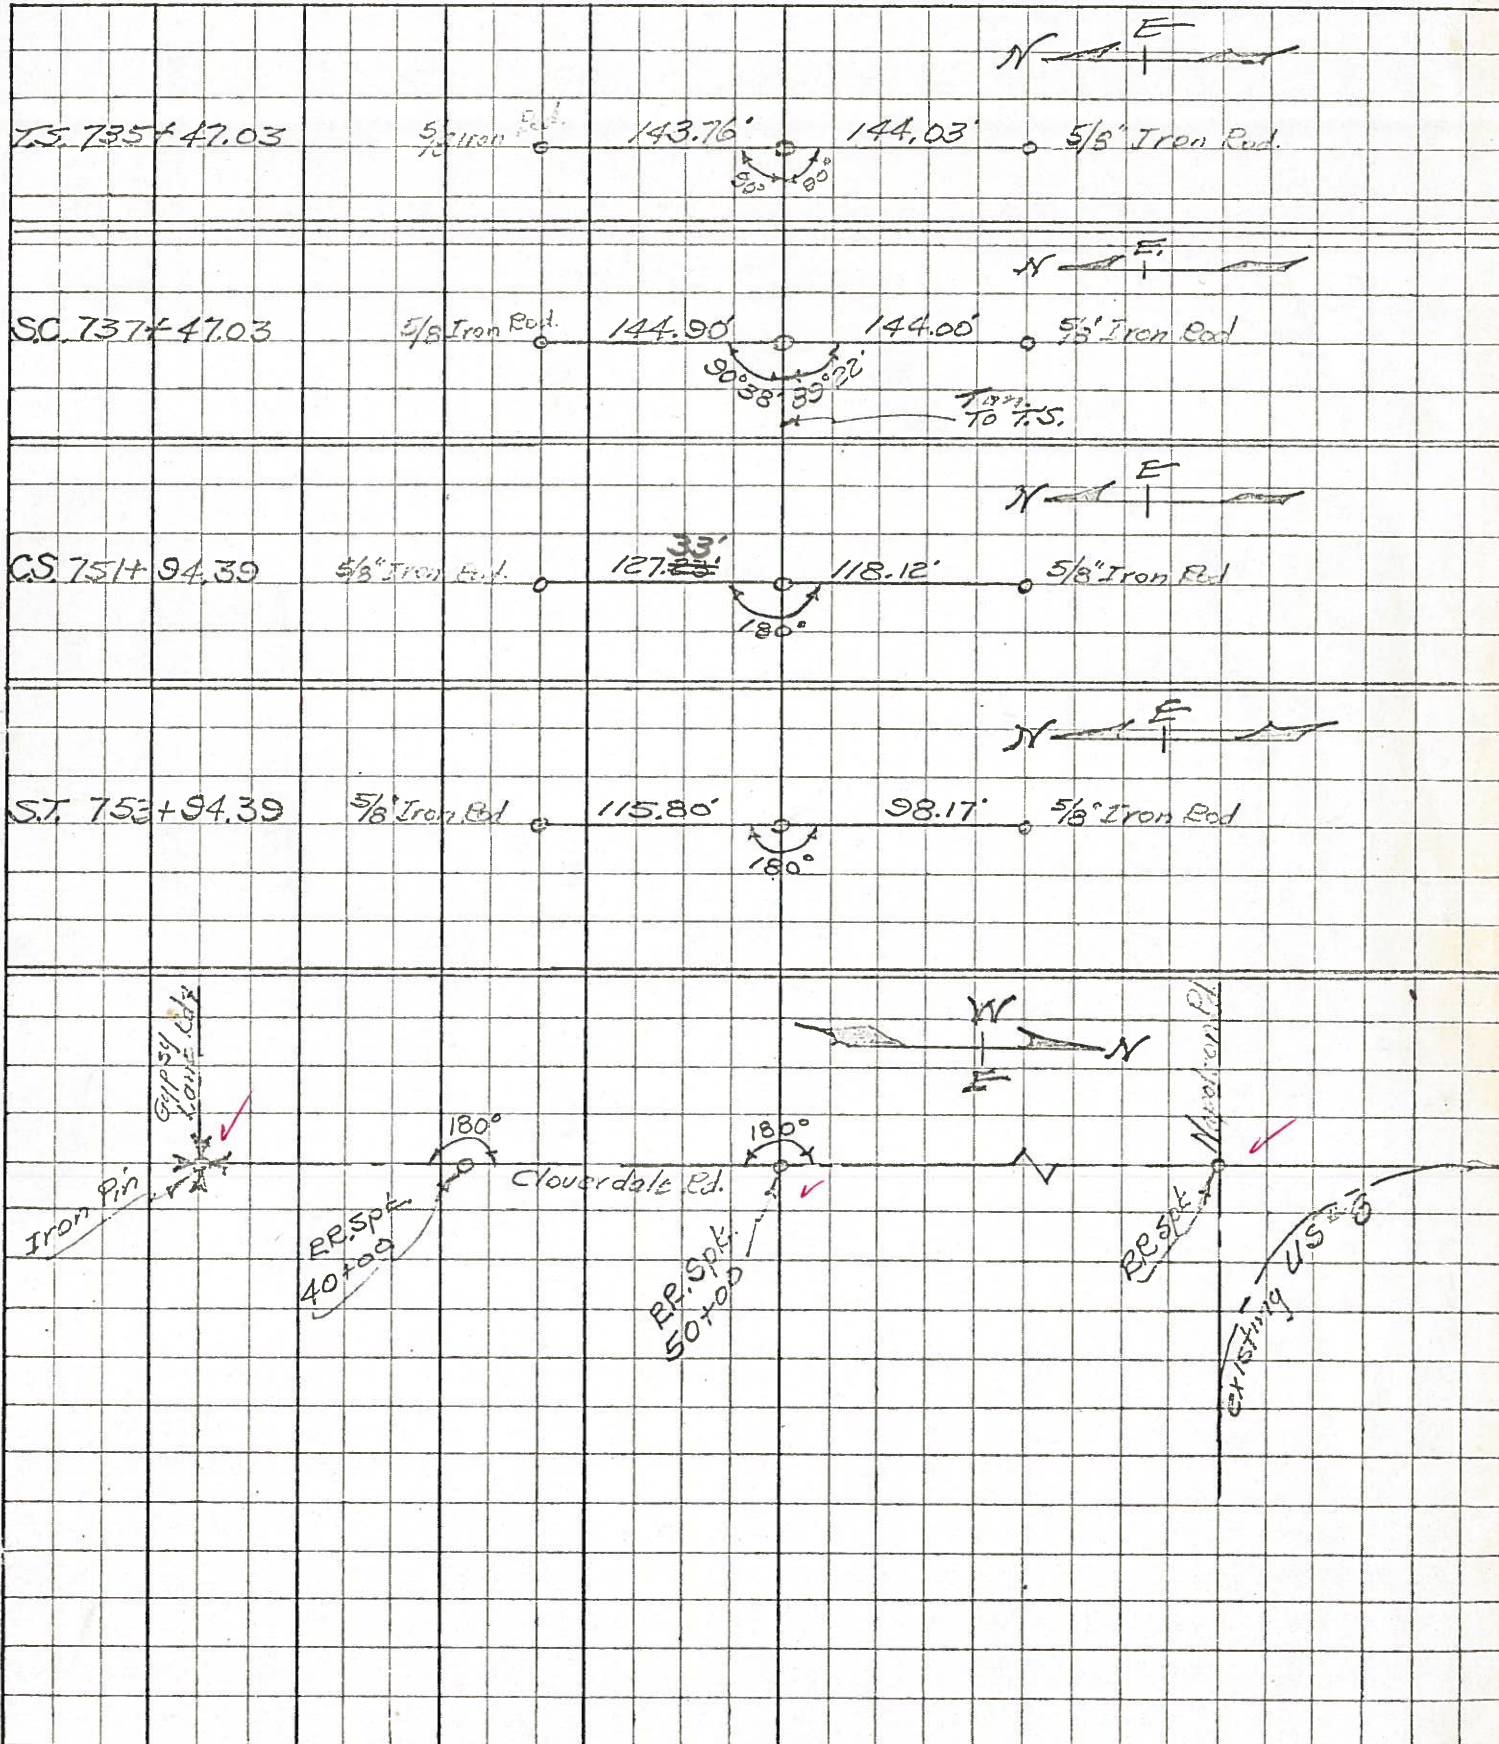 E
N
T.S. 735+47.03 5/8 Iron Rod. 143.76' 144.03' 5/8" Iron Rod.
90° 90°
E.
N
S.C. 737+47.03 5/8 Iron Rod. 144.90' 144.00' 5/8" Iron Rod
90°38' 89°22'
Tan.
To T.S.
E
N
33'
C.S. 751+94.39 5/8" Iron Rod. 127. 118.12' 5/8" Iron Rod
180°
E
N
S.T. 753+94.39 5/8" Iron Rod 115.80' 98.17' 5/8" Iron Rod
180°
W
N
E
Gypsy
Lane Rd.
180° 180°
Cloverdale Rd.
Iron Pin
R.R. Spk.
40+00
R.R. Spk.
50+00
R.R. Spk.
existing US